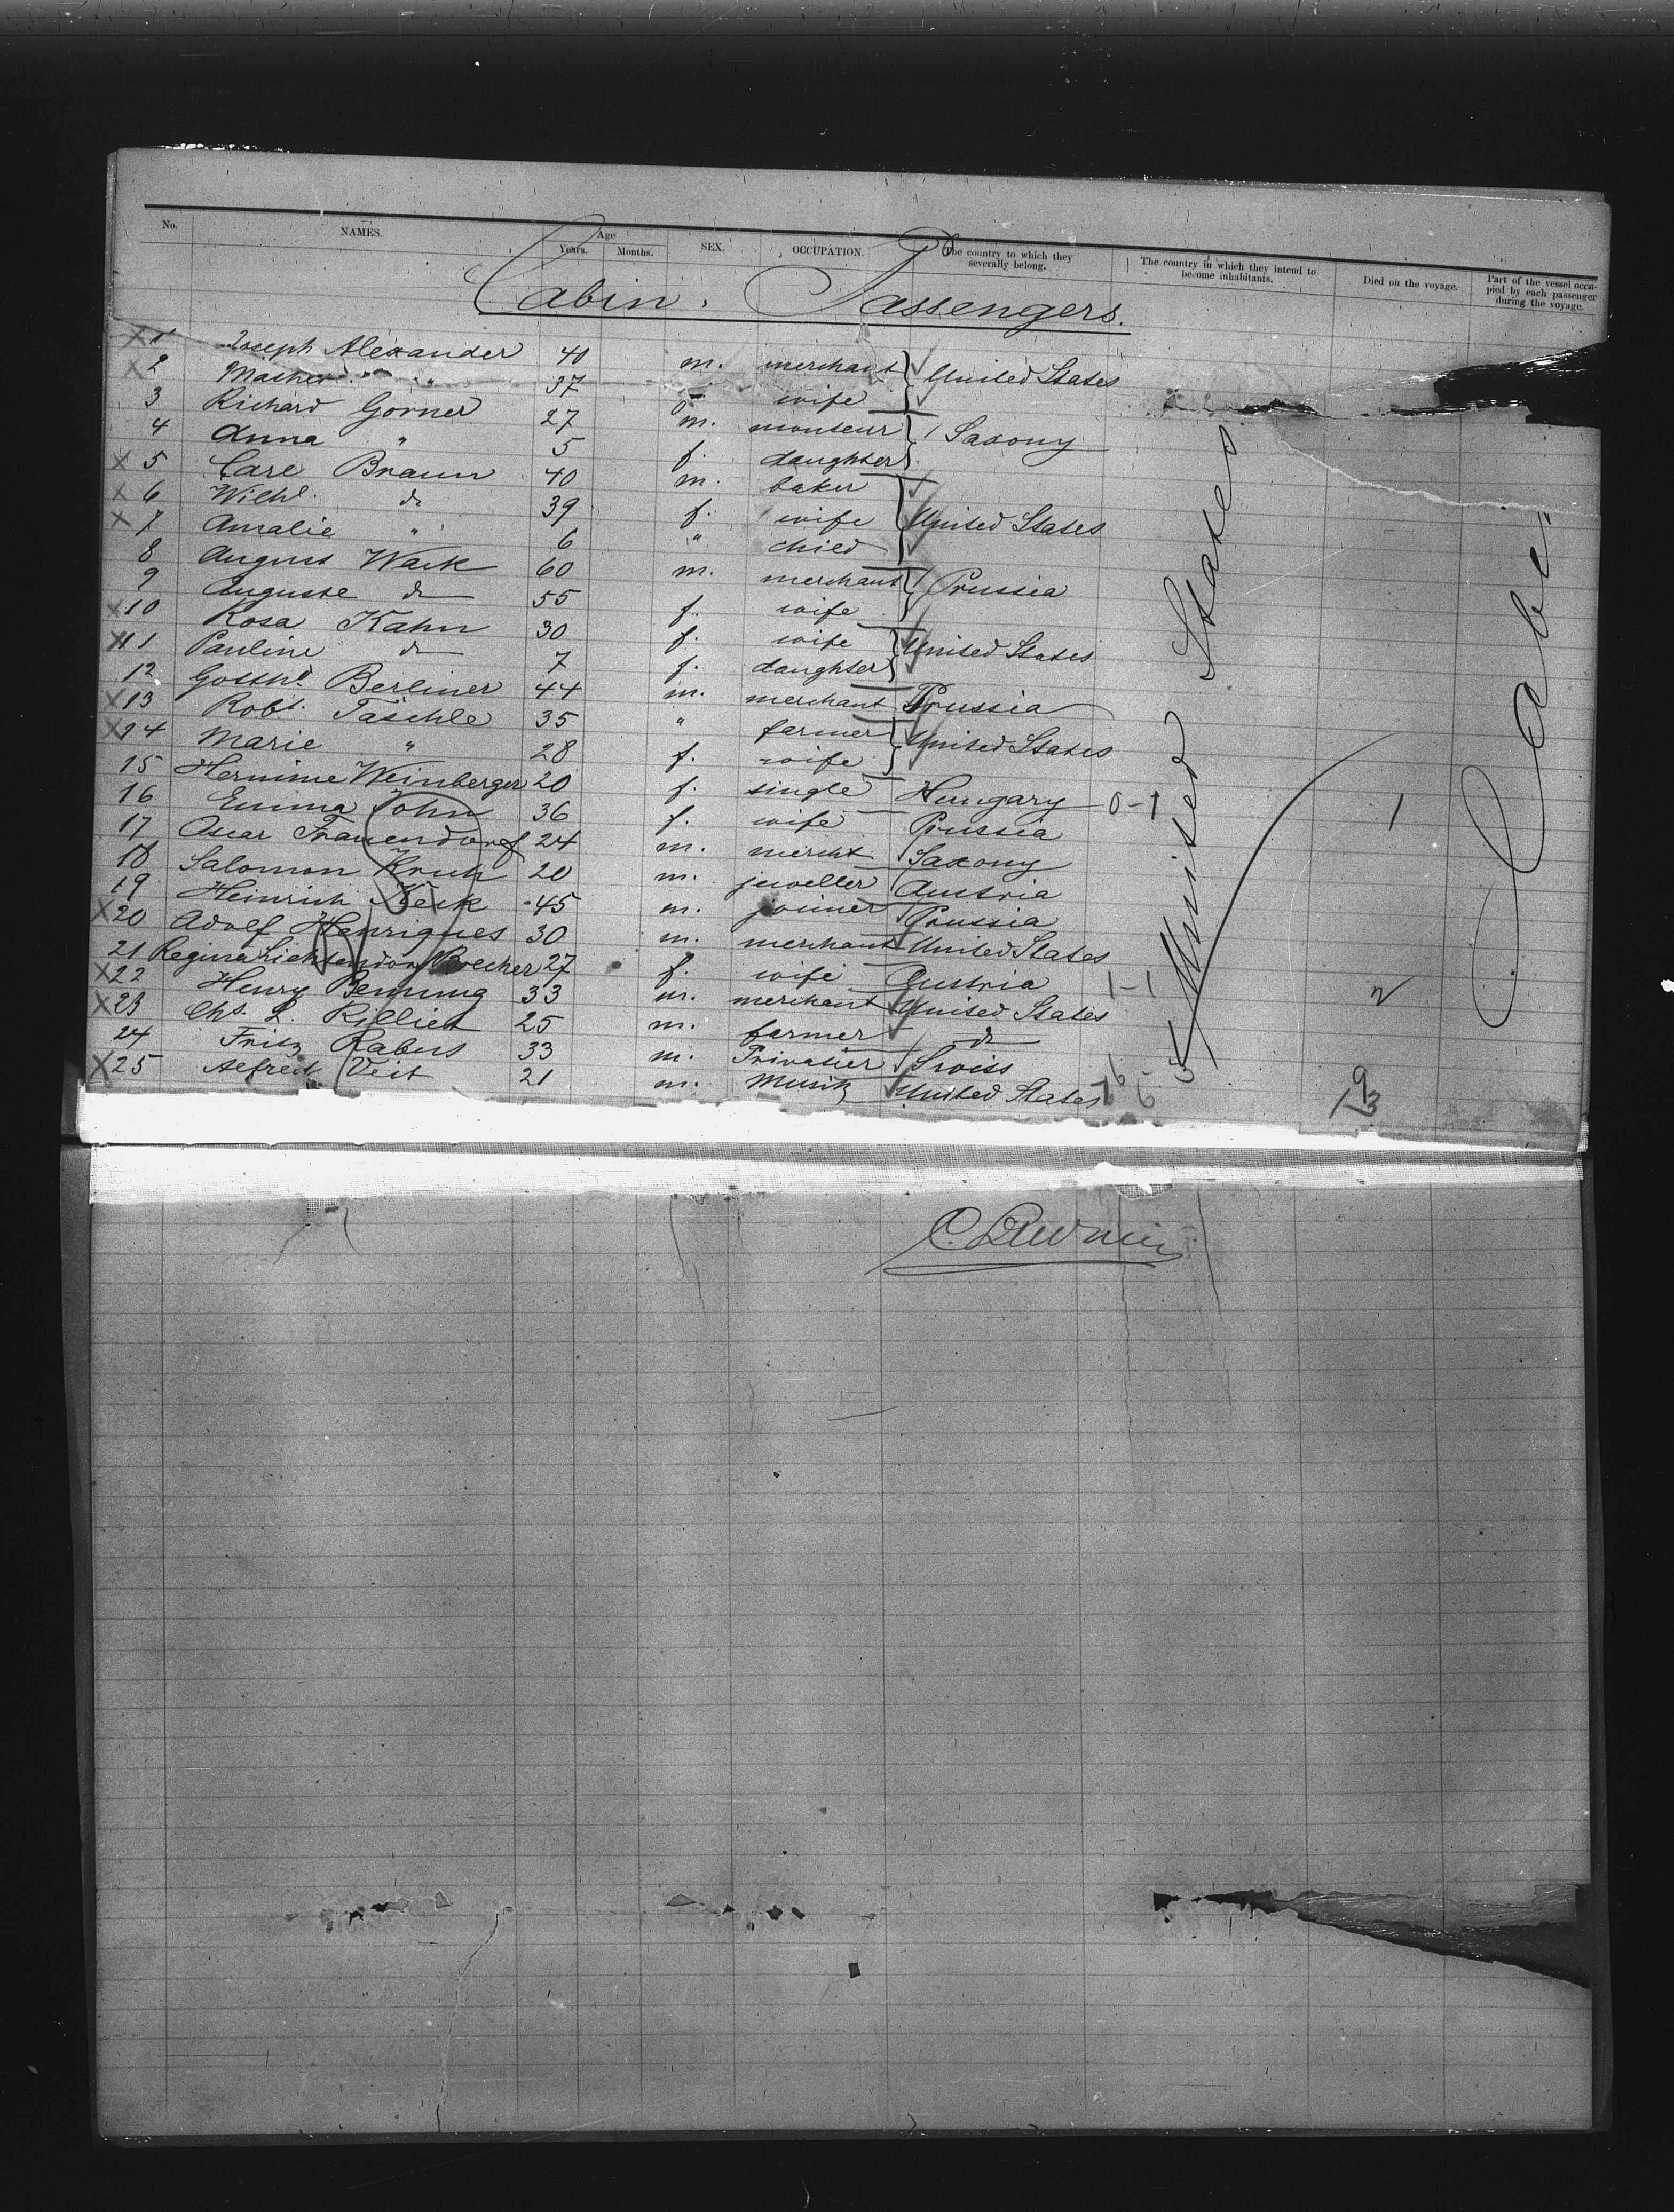 No. NAMES. Age Years. Months. SEX. OCCUPATION. The country to which they severally belong. The country in which they intend to become inhabitants. Died on the voyage. Part of the vessel occupied by each passenger during the voyage.
Cabin. Passengers.
X 1 Joseph Alexander 40 m. merchant United States
X 2 " 37 wife
3 Richard Gorner 27 m. monteur Saxony
4 Anna " 5 f. daughter
X 5 Carl Braun 40 m. baker
X 6 Wilh. do 39 f. wife United States
X 7 Amalie " 6 " child
8 August Wack 60 m. merchant Prussia
9 Auguste do 55 f. wife
X 10 Rosa Kahn 30 f. wife United States
X 11 Pauline do 7 f. daughter
12 Gotthd. Berliner 44 m. merchant Prussia
X 13 Robt. Täschle 35 " farmer United States
X 14 Marie " 28 f. wife
15 Hermine Weinberger 20 f. single Hungary 0-1 1
16 Emma John 36 f. wife Prussia
17 Oscar Frauendorf 24 m. mercht Saxony
18 Salomon Kruh 20 m. jeweller Austria
19 Heinrich Keck 45 m. joiner Prussia
X 20 Adolf Henriques 30 m. merchant United States
21 Regina Brecher 27 f. wife Austria 1-1 2
X 22 Henry Benning 33 m. merchant United States
X 23 Chs. L. Rilliet 25 m. farmer do
24 Fritz Rabus 33 m. Privatier Swiss
X 25 Alfred Veit 21 m. Musik United States
United States